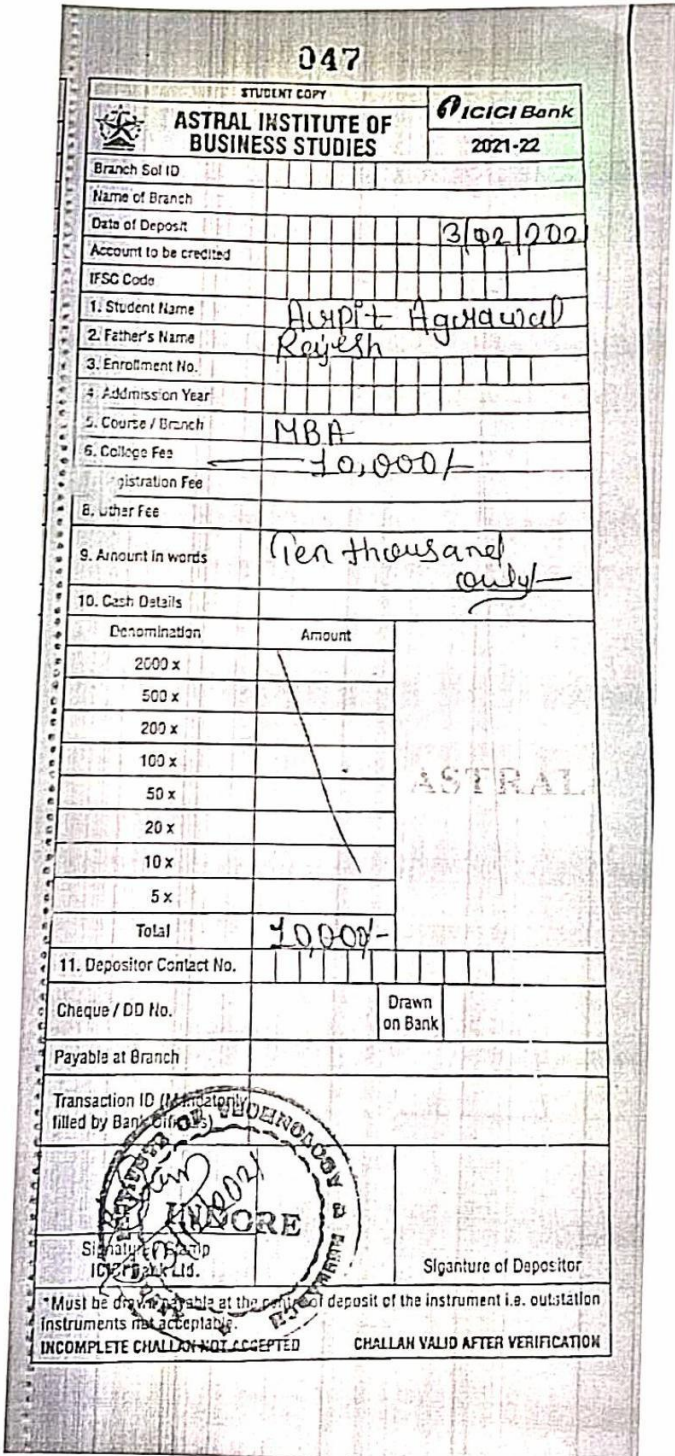 047
STUDENT COPY
ASTRAL INSTITUTE OF
BUSINESS STUDIES
ICICI Bank
2021-22
Branch Sol ID
Name of Branch
Date of Deposit 3/02/202
Account to be credited
IFSC Code
1. Student Name Aurpit Agarawal
2. Father's Name Rajesh
3. Enrollment No.
4. Addmission Year
5. Course / Branch MBA
6. College Fee 10,000/-
gistration Fee
8. Other Fee
9. Amount in words Ten thousand
only/-
10. Cash Details
Denomination Amount
2000 x
500 x
200 x
100 x
50 x
20 x
10 x
5 x
Total 10,000/-
ASTRAL
11. Depositor Contact No.
Cheque / DD No. Drawn
on Bank
Payable at Branch
Transaction ID (Mandatorily
filled by Bank Officials)
OF TECHNOLOGY &
INDORE
Signature / Stamp
ICICI Bank Ltd.
Siganture of Depositor
*Must be drawn payable at the centre of deposit of the instrument i.e. outstation
instruments not acceptable.
INCOMPLETE CHALLAN NOT ACCEPTED CHALLAN VALID AFTER VERIFICATION